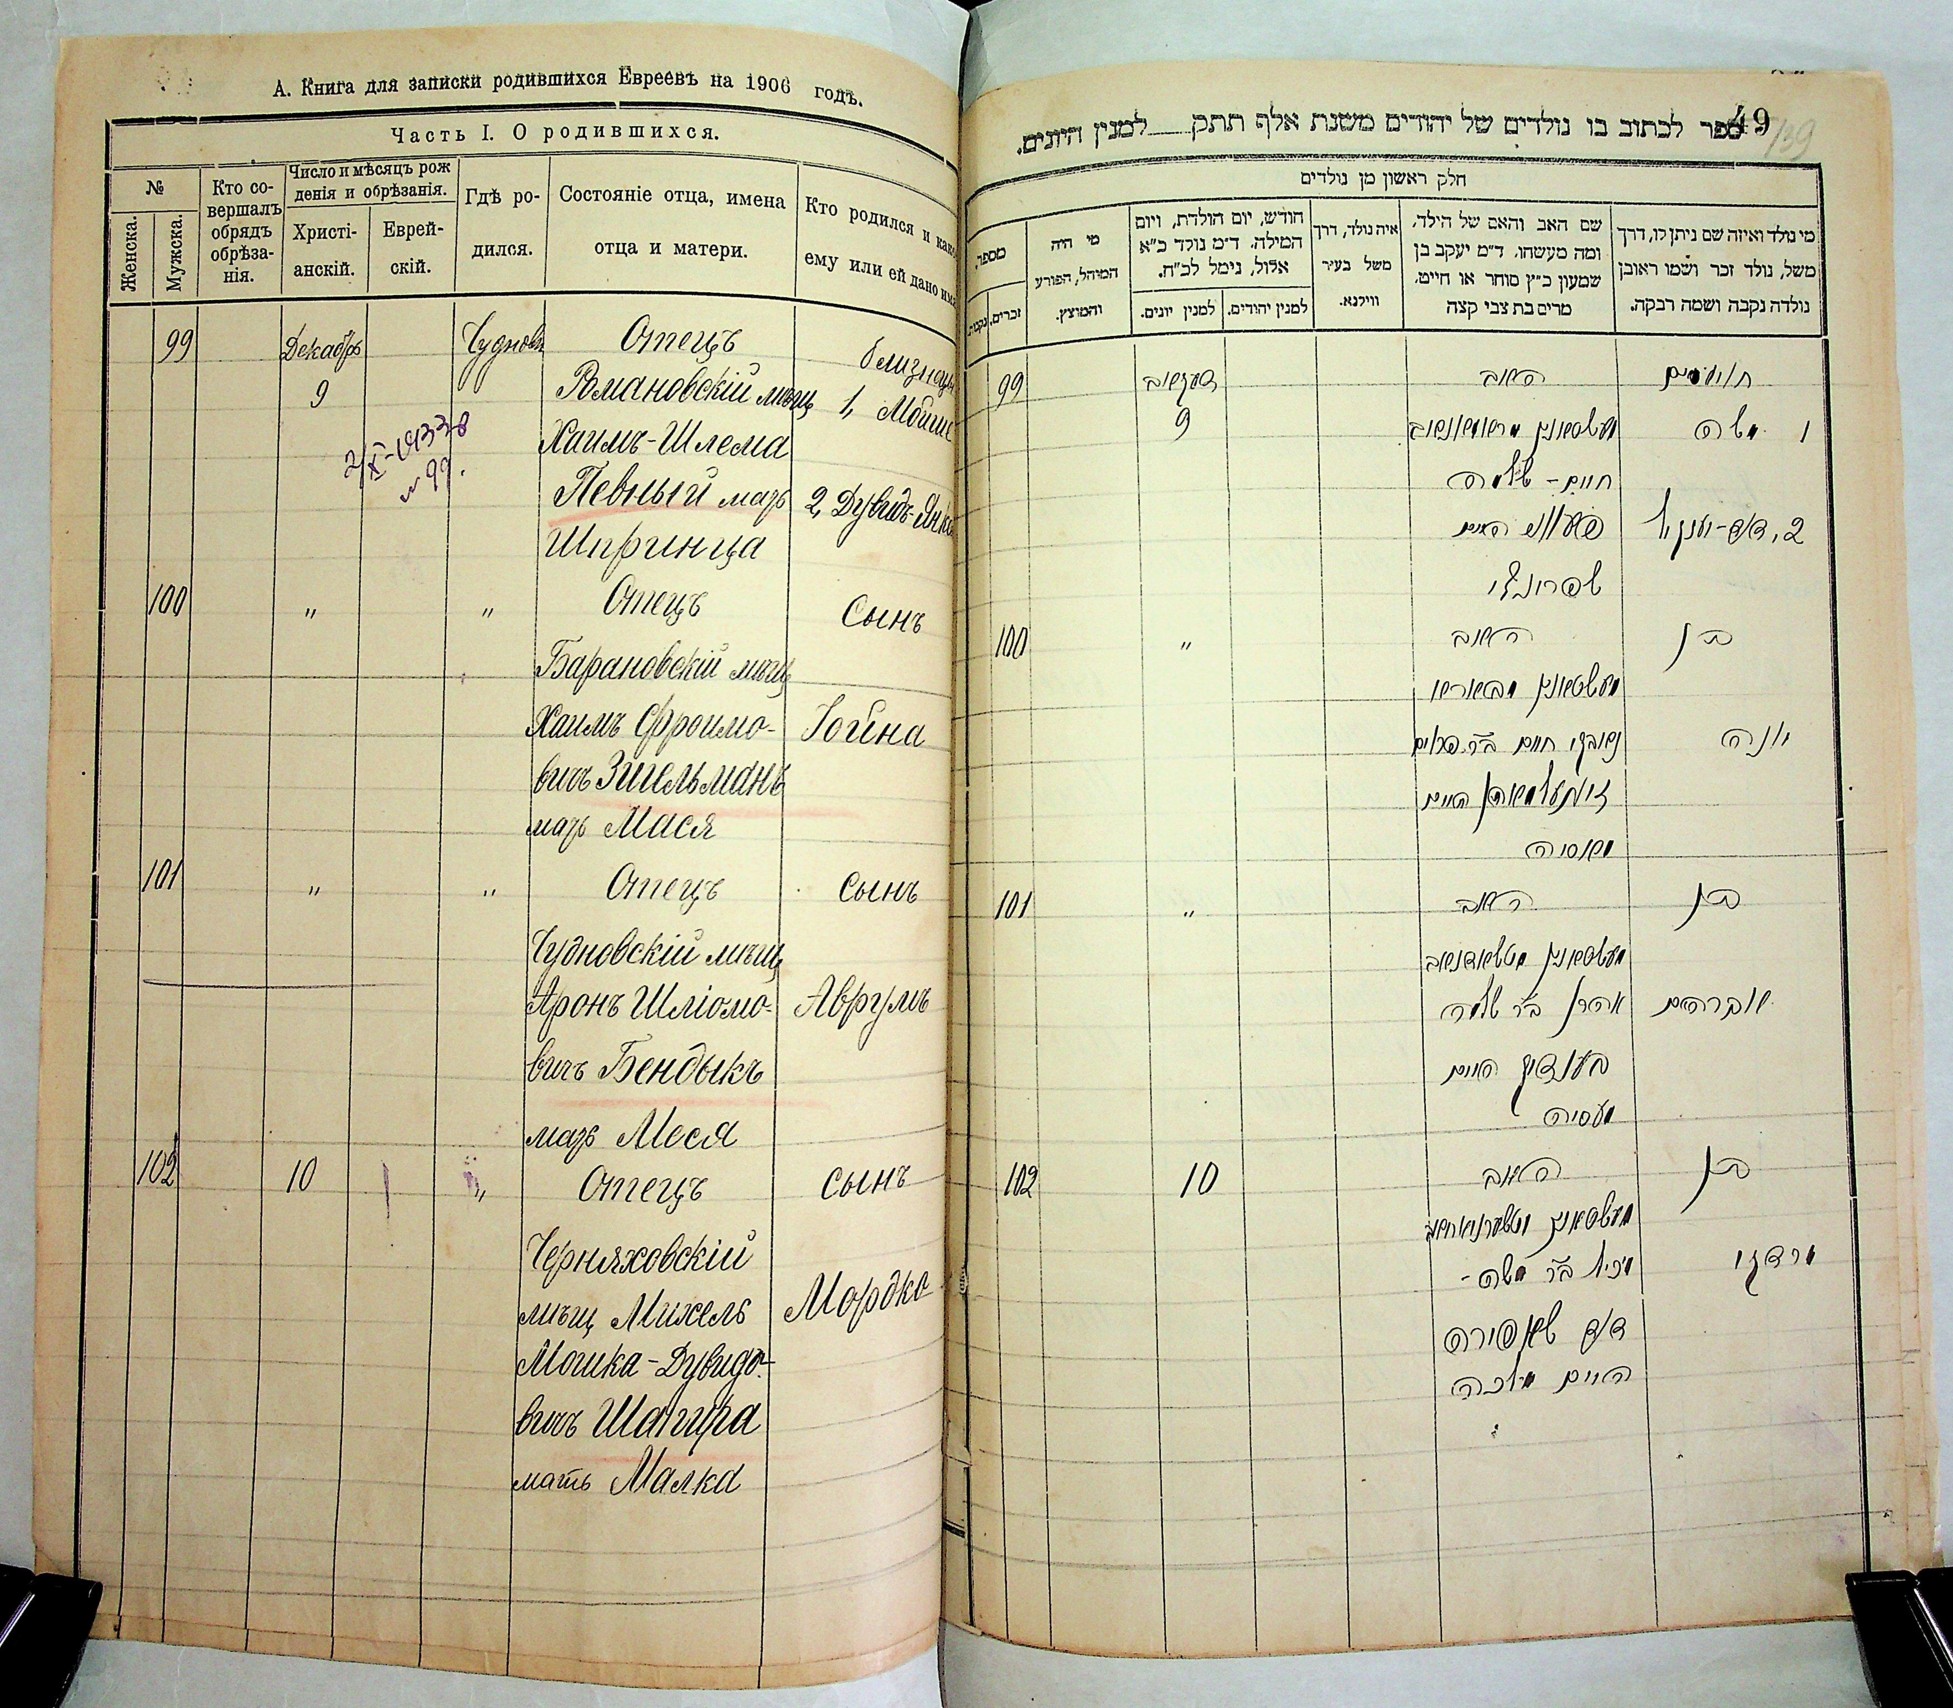 А. Книга для записки родившихся Евреевъ на 1906 годъ.
Часть I. О родившихся.
№
Женска.
Мужска.
Кто совершалъ обрядъ обрѣза-
нія.
Число и мѣсяцъ рож
денія и обрѣзанія.
Христі-
анскій.
Еврей-
скій.
Гдѣ ро-
дился.
Состояніе отца, имена
отца и матери.
Кто родился и како
ему или ей дано имя
99 Декабрь Чудновъ Отецъ близнецы
9 Романовскій мѣщ 1, Мойше
Хаимъ-Шлема
№ 99.
Певный мать 2, Дувидъ-Янке
Шпринца
100 " " Отецъ Сынъ
Барановскій мѣщ
Хаимъ Фроимо- Іойна
вичъ Зигельманъ
мать Мася
101 " " Отецъ Сынъ
Чудновскій мѣщ
Аронъ Шліомо- Аврумъ
вичъ Бендыкъ
мать Меся
102 10 " Отецъ Сынъ
Черняховскій
мѣщ Михель Мордко
Мошка-Дувидо-
вичъ Шапира
мать Малка
49
139
ספר לכתוב בו נולדים של יהודים משנת אלף תתק למנין היונים.
חלק ראשון מן נולדים
מי נולד ואיזה שם ניתן לו, דרך
משל, נולד זכר ושמו ראובן
נולדה נקבה ושמה רבקה.
שם האב והאם של הילד,
ומה מעשהו, ד״מ יעקב בן
שמעון כ״ץ סוחר או חייט,
מרים בת צבי קצה
איה נולד, דרך
משל בעיר
ווילנא.
חודש, יום הולדת, ויום
המילה. ד״מ נולד כ״א
אלול, נימל לכ״ח.
למנין יהודים.
למנין יונים.
מי היה
המוהל, הפורע
והמוצץ.
מספר,
זכרים.
נקבות
תאומים האב דעקאב 99
1 משה 9
חיים-שלמה
2, דוד-יענקיל
שפרינצי
בן האב " 100
יונה
מאסיה
בן האב " 101
אברהם אהרן ב״ר שלמה
בענדיק האם
מעסיה
בן האב 10 102
מרדכי מיכל ב״ר משה-
דוד שאפירה
האם מלכה